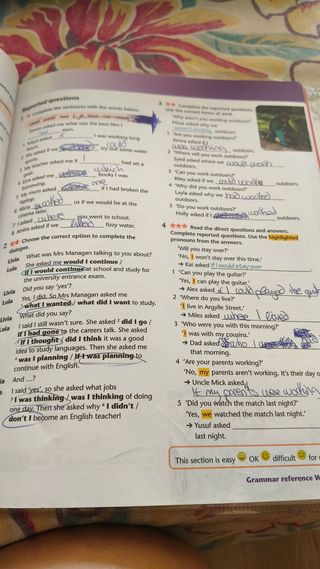 Reported questions
1 ★ Complete the sentences with the words below.
asked me what was the best film I
had seen.
asked I was working long
We asked if we could some water
sports.
3 My teacher asked if I had set a
goal.
asked me which books I was
borrowing.
5 My mum asked me if I had broken the
laptop.
asked us if we would be at the
cinema later.
7 I asked where you went to school.
8 Amira asked if we liked fizzy water.
2 ★★ Choose the correct option to complete the
Livia What was Mrs Managan talking to you about?
Lola She asked me would I continue /
if I would continue at school and study for
the university entrance exam.
Livia Did you say 'yes'?
Lola Yes, I did. So Mrs Managan asked me
what I wanted / what did I want to study.
Livia What did you say?
Lola I said I still wasn't sure. She asked 2 did I go /
if I had gone to the careers talk. She asked
3 if I thought / did I think it was a good
idea to study languages. Then she asked me
4 was I planning / if I was planning to
continue with English.
And ...?
I said 'yes', so she asked what jobs
5 I was thinking / was I thinking of doing
one day. Then she asked why 6 I didn't /
don't I become an English teacher!
3 ★★ Complete the reported questions.
Use the correct forms of work.
'Why aren't you working outdoors?'
Musa asked why we
weren't working outdoors.
1 'Are you working outdoors?'
Amira asked if we
were working outdoors.
2 'Where will you work outdoors?'
Syed asked where we would work
outdoors.
3 'Can you work outdoors?'
Riley asked if we could work outdoors.
4 'Why did you work outdoors?'
Layla asked why we had worked
outdoors.
5 'Do you work outdoors?'
Holly asked if I worked outdoors.
4 ★★★ Read the direct questions and answers.
Complete reported questions. Use the highlighted
pronouns from the answers.
'Will you stay over?'
'No, I won't stay over this time.'
→ Kai asked if I would stay over
1 'Can you play the guitar?'
'Yes, I can play the guitar.'
→ Alex asked if I could played the guit
2 'Where do you live?'
'I live in Argyle Street.'
→ Miles asked where I lived
3 'Who were you with this morning?'
'I was with my cousins.'
→ Dad asked who I was
that morning.
4 'Are your parents working?'
'No, my parents aren't working. It's their day o
→ Uncle Mick asked
if my parents were working
5 'Did you watch the match last night?'
'Yes, we watched the match last night.'
→ Yusuf asked
last night.
This section is easy OK difficult for
Grammar reference